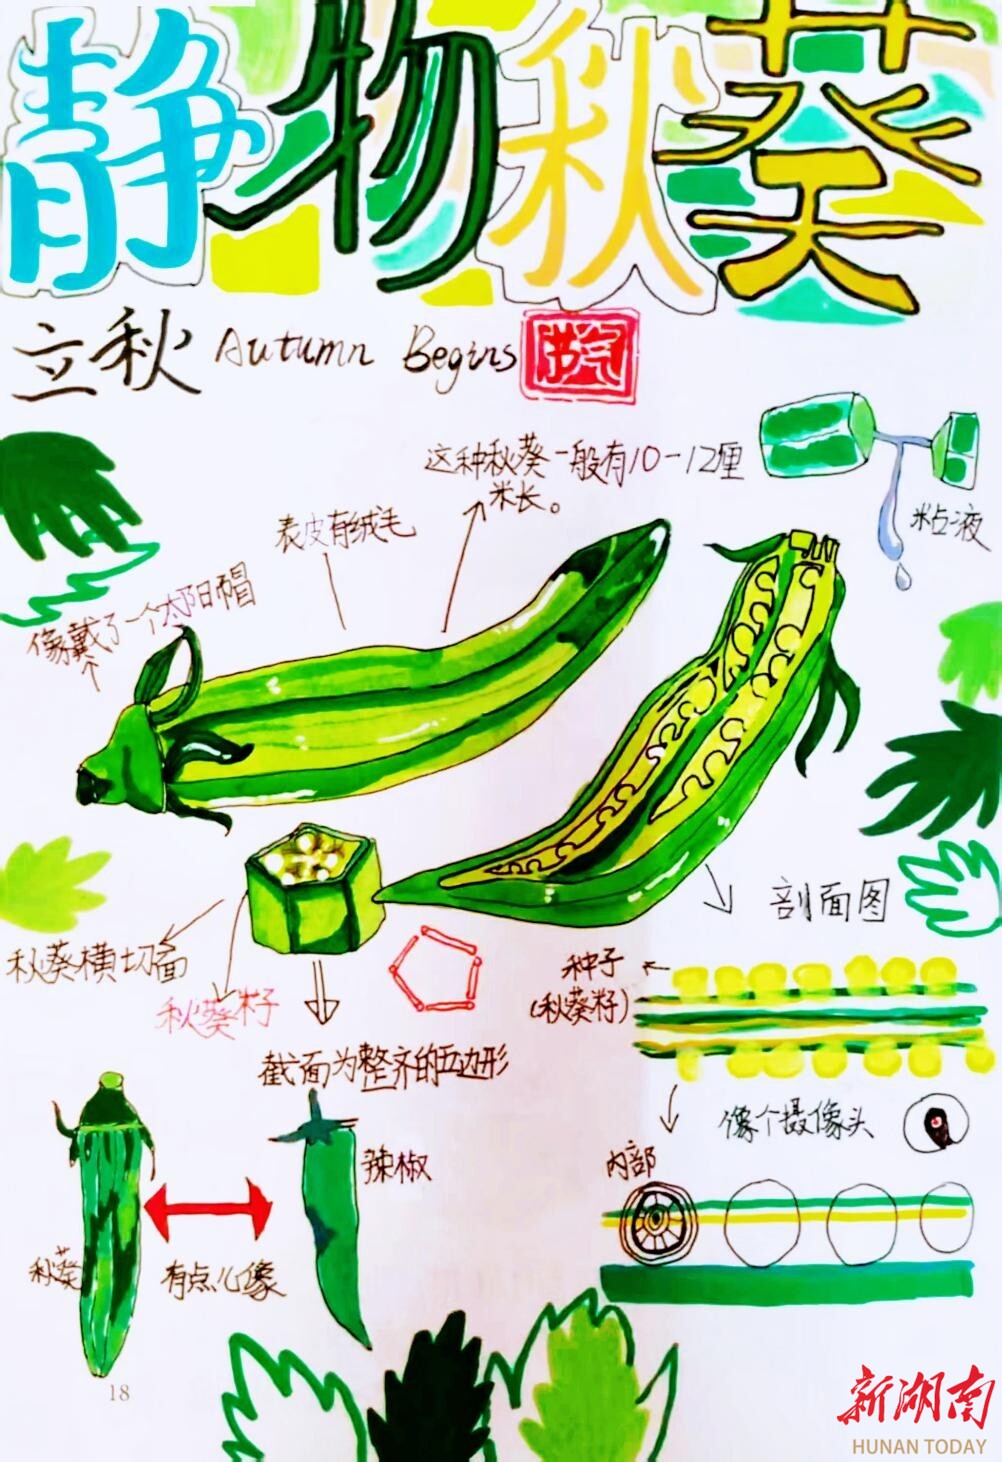 静物秋葵
立秋 Autumn Begins 节气
这种秋葵一般有10-12厘
米长。
表皮有绒毛
粘液
像戴了一个太阳帽
剖面图
秋葵横切面
种子
(秋葵籽)
秋葵籽
截面为整齐的五边形
像个摄像头
辣椒
内部
秋葵
有点儿像
18
新湖南
HUNAN TODAY